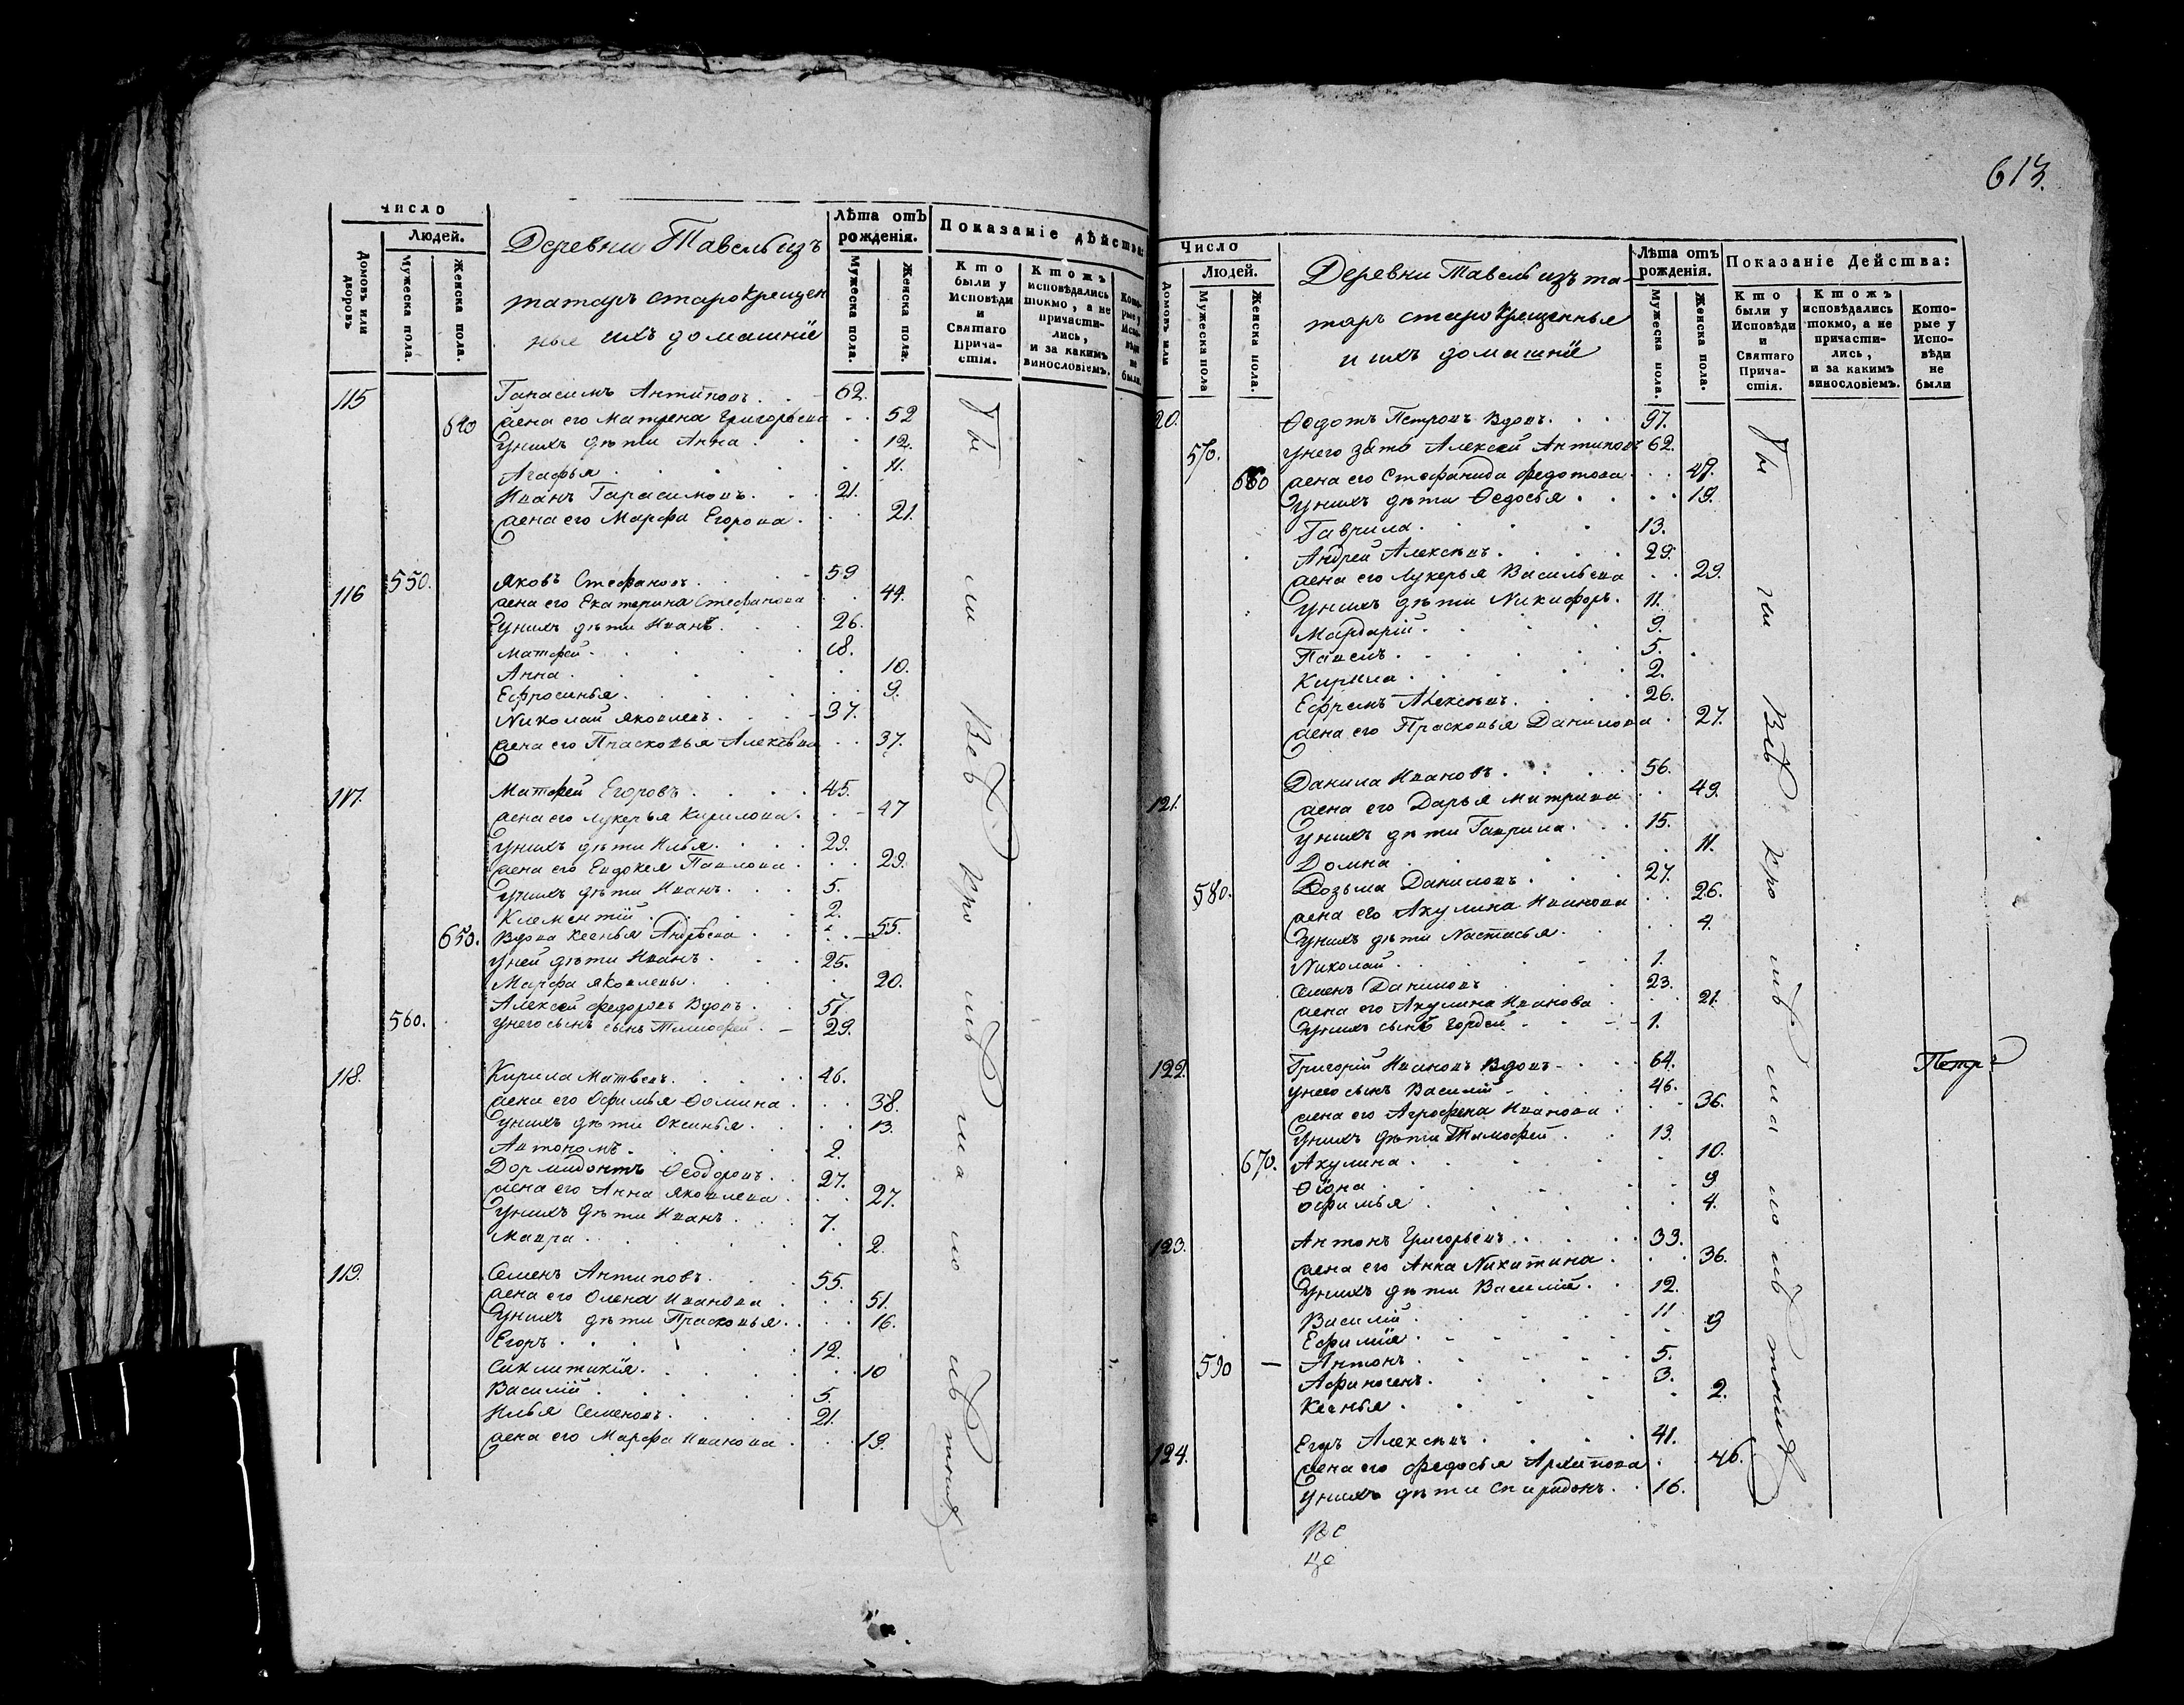 Число
Людей.
Домовъ или дворовъ
Мужеска пола.
Женска пола.
Деревни Тавель изъ
татаръ старокрещен
ные ихъ домашнїе
Лѣта отъ рожденія.
Мужеска пола.
Женска пола.
Показаніе дѣйства:
Кто были у Исповѣди и Святаго Причастія.
Ктожъ исповѣдались токмо, а не причастились, и за какимъ винословіемъ.
Которые у Исповѣди не были.
115 Гарасимъ Антиповъ 62.
640 жена его Матрена Григорьева 52
у нихъ дѣти Анна 12.
Агафья 11.
Иванъ Гарасимовъ 21.
жена его Марфа Егорова 21.
116 550. Яковъ Стефановъ 59
жена его Екатерина Стефанова 44.
у нихъ дѣти Иванъ 26.
Матфей 18.
Анна 10.
Ефросинья 9.
Николай Яковлевъ 37.
жена его Прасковья Алексѣева 37.
117. Матфей Егоровъ 45.
жена его Лукерья Кирилова 47
у нихъ дѣти Илья 29.
жена его Евдокея Павлова 29.
у нихъ дѣти Иванъ 5.
Климентїй 2.
650. Вдова Ксенья Андрѣева 55.
у ней дѣти Иванъ 25.
Марфа Яковлева 20.
Алексей Федоровъ Вдовъ 57
560. у него сынъ сынъ Тимофей 29.
118. Кирила Матвеевъ 46.
жена его Офимья Фомина 38.
у нихъ дѣти Оксинья 13.
Автономъ 2.
Дормидонтъ Ѳеодоровъ 27.
жена его Анна Яковлева 27.
у нихъ дѣти Иванъ 7.
Мавра 2.
119. Семенъ Антиповъ 55.
жена его Олена Иванова 51.
у нихъ дѣти Прасковья 16.
Егоръ 12.
Сиклитикїя 10
Василїй 5.
Илья Семеновъ 21.
жена его Марфа Иванова 19.
613.
Число
Людей.
Домовъ или
Мужеска пола
Женска пола.
Деревни Тавель изъ та-
таръ старокрещенные
и ихъ домашнїе
Лѣта отъ рожденія.
Мужеска пола.
Женска пола.
Показаніе Дейсmва:
Кто были у Исповѣди и Святаго Причастія.
Ктожъ исповѣдались токмо, а не причастились, и за какимъ винословіемъ.
Которые у Исповѣди не были
20. Ѳедотъ Петровъ Вдовъ 97.
570. у него зять Алексей Антиповъ 62.
660 жена его Стефанида Федотова 47.
у нихъ дѣти Ѳедосья 19.
Гаврила 13.
Андрей Алексѣевъ 29.
жена его Лукерья Васильева 29.
у нихъ дѣти Никифоръ 11.
Мардарїй 9.
Павелъ 5.
Кирила 2.
Ефремъ Алексѣевъ 26.
жена его Прасковья Данилова 27.
121. Данила Ивановъ 56.
жена его Дарья Митрева 49.
у нихъ дѣти Гаврила 15.
Домна 11.
580. Козьма Даниловъ 27.
жена его Акулина Иванова 26.
у нихъ дѣти Настасья 4.
Николай 1.
Семенъ Даниловъ 23.
жена его Акулина Иванова 21.
у нихъ сынъ Гордей 1.
122. Григорїй Ивановъ Вдовъ 64.
у него сынъ Василїй 46.
жена его Агрофена Иванова 36.
у нихъ дѣти Тимофей 13.
670. Акулина 10.
9
Офимья 4.
123. Антонъ Григорьевъ 33.
жена его Анна Никитина 36.
у нихъ дѣти Василїй 12.
Василїй 11
Ефимїя 9
590 Антонъ 5.
Афиногенъ 3.
Ксенья 2.
124. Егоръ Алексѣевъ 41.
жена его Федосья Архипова 46.
у нихъ дѣти Спиридонъ 16.